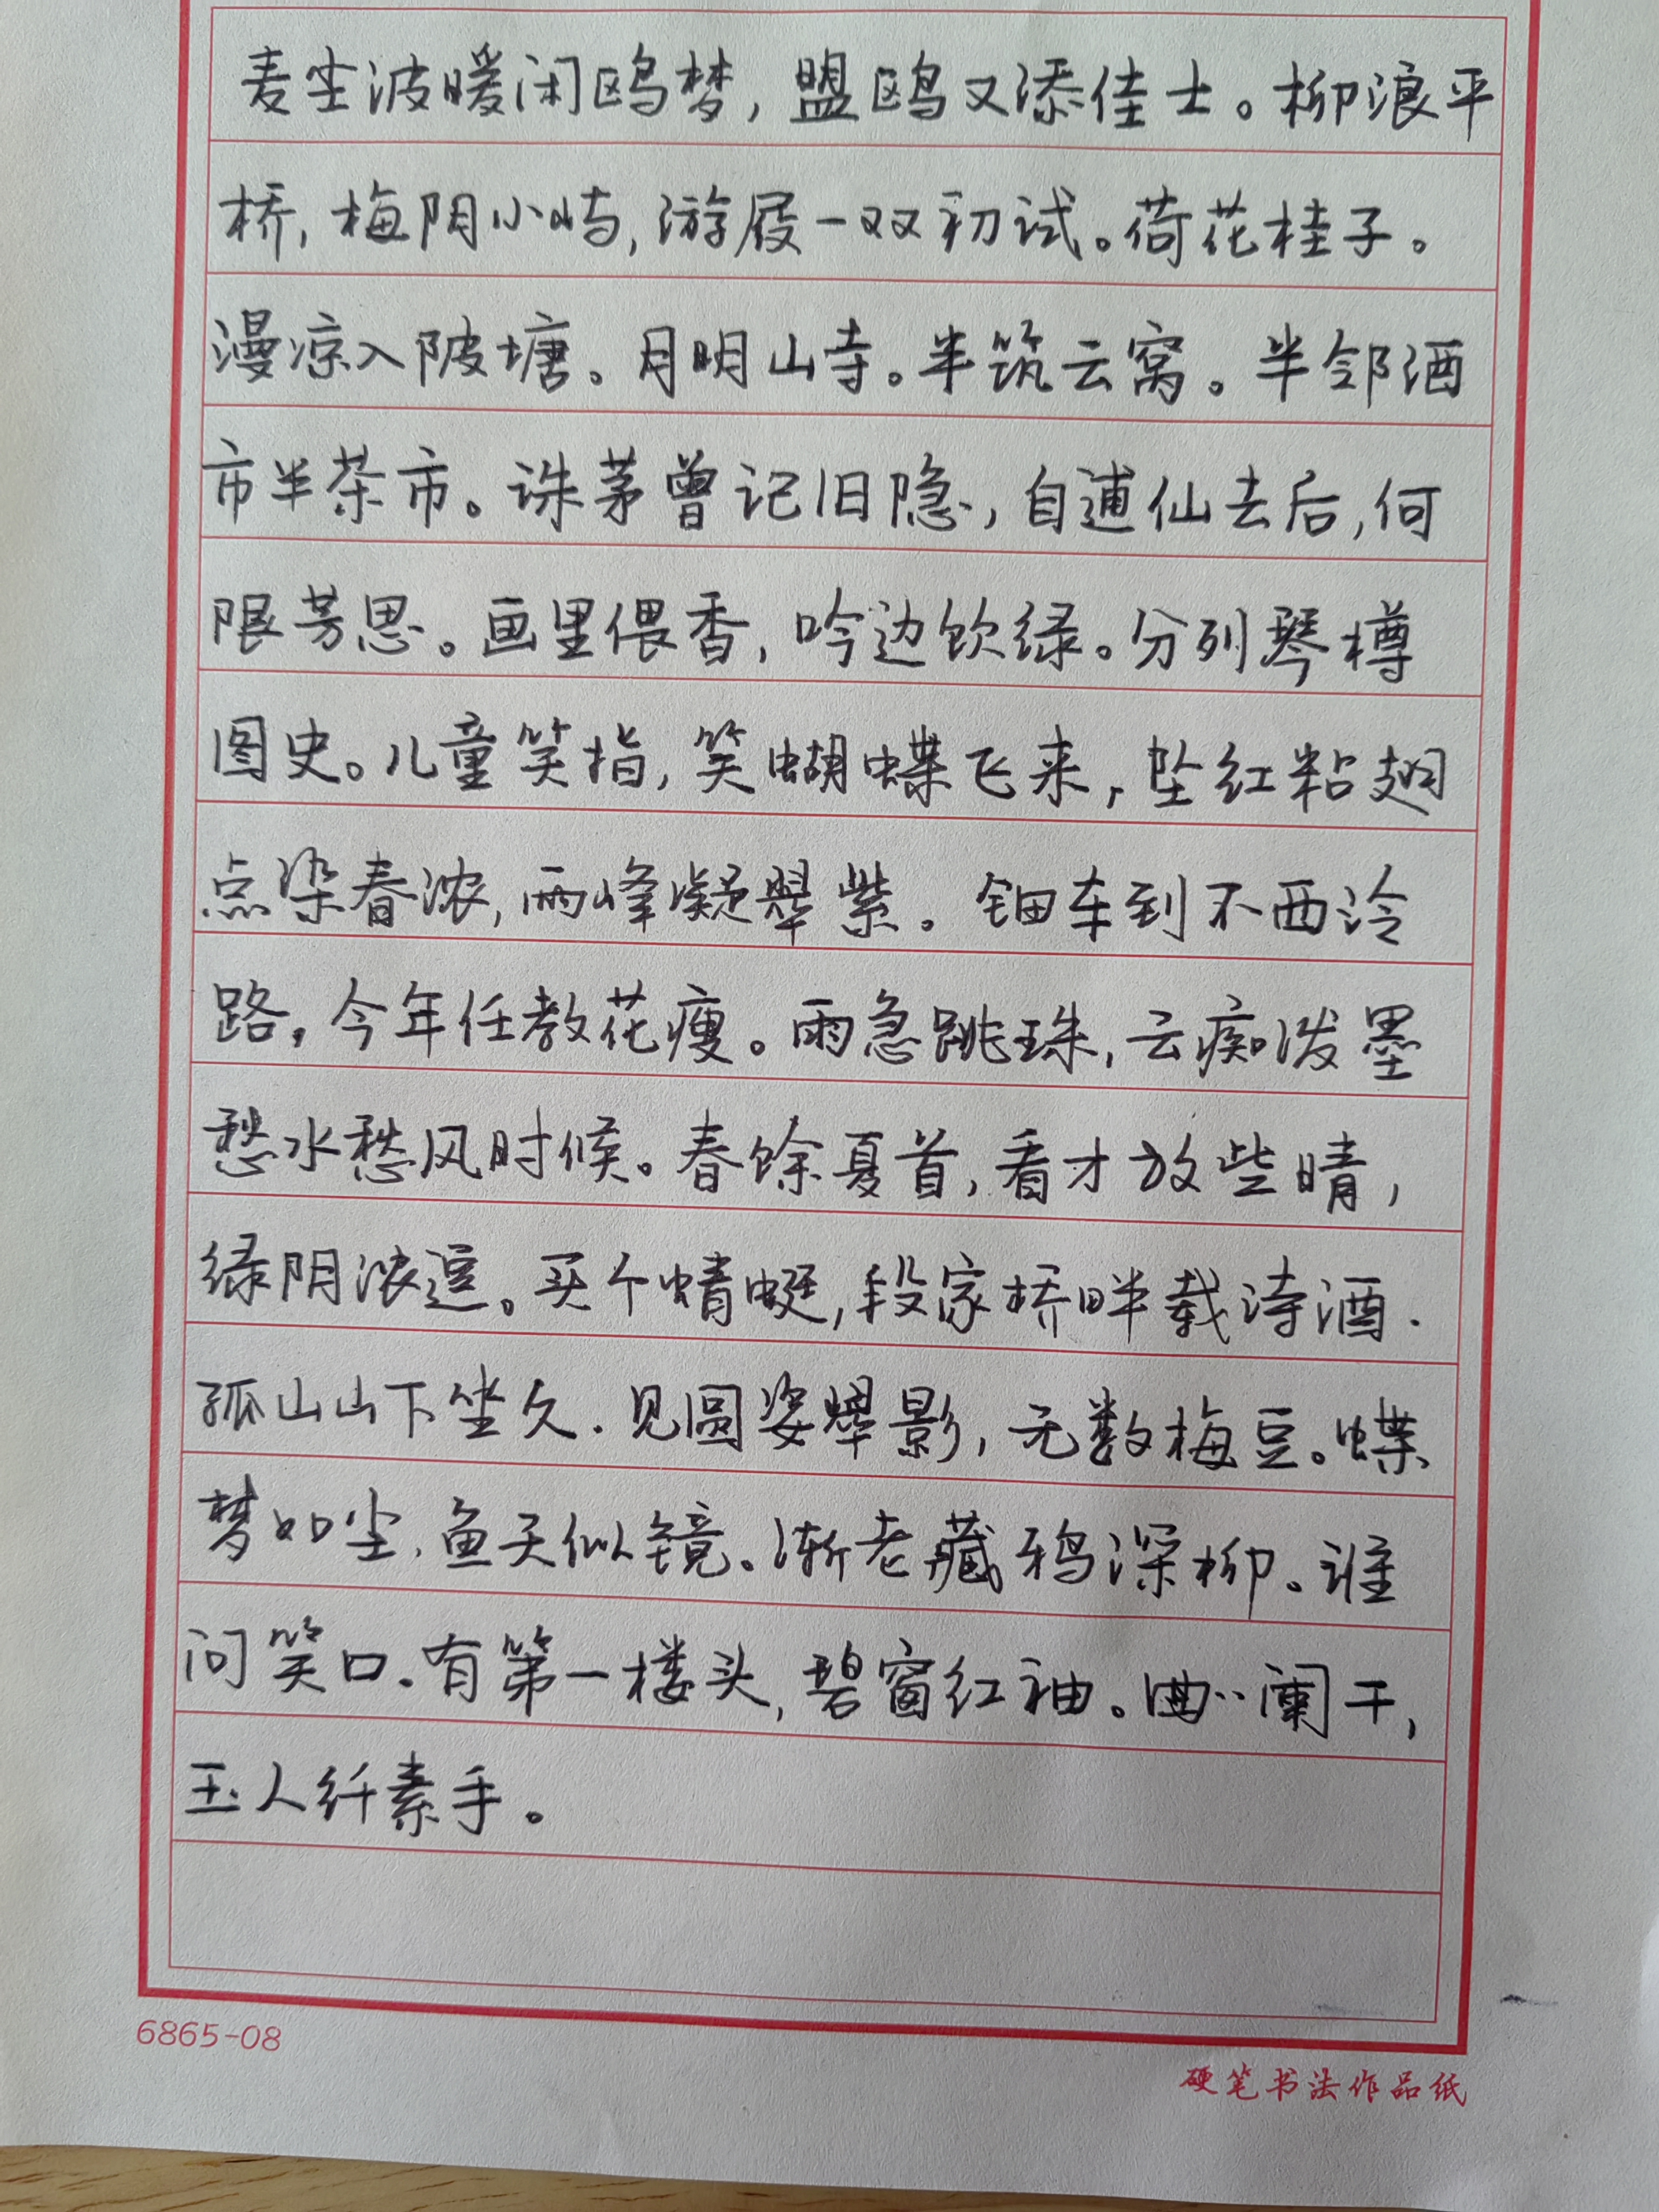 麦尘波暖闲鸥梦，盟鸥又添佳士。柳浪平
桥，梅阴小屿，游屐一双初试。荷花桂子。
漫凉入陂塘。月明山寺。半筑云窝。半邻酒
市半茶市。诛茅曾记旧隐，自逋仙去后，何
限芳思。画里偎香，吟边饮绿。分列琴樽
图史。儿童笑指，笑蝴蝶飞来，坠红粘翅
点染春浓，两峰凝翠紫。钿车到不西泠
路，今年任教花瘦。雨急跳珠，云痴泼墨
愁水愁风时候。春馀夏首，看才放些晴，
绿阴浓逗。买个蜻蜓，段家桥畔载诗酒.
孤山山下坐久.见圆姿翠影，无数梅豆。蝶
梦如尘.鱼天似镜。渐老藏鸦深柳。谁
问笑口.有第一楼头，碧窗红袖。曲··阑干，
玉人纤素手。
6865-08
硬笔书法作品纸